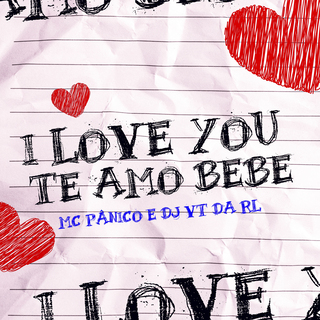 AMO BEBE
I LOVE YOU
TE AMO BEBE
MC PANICO E DJ VT DA RL
I LOVE Y